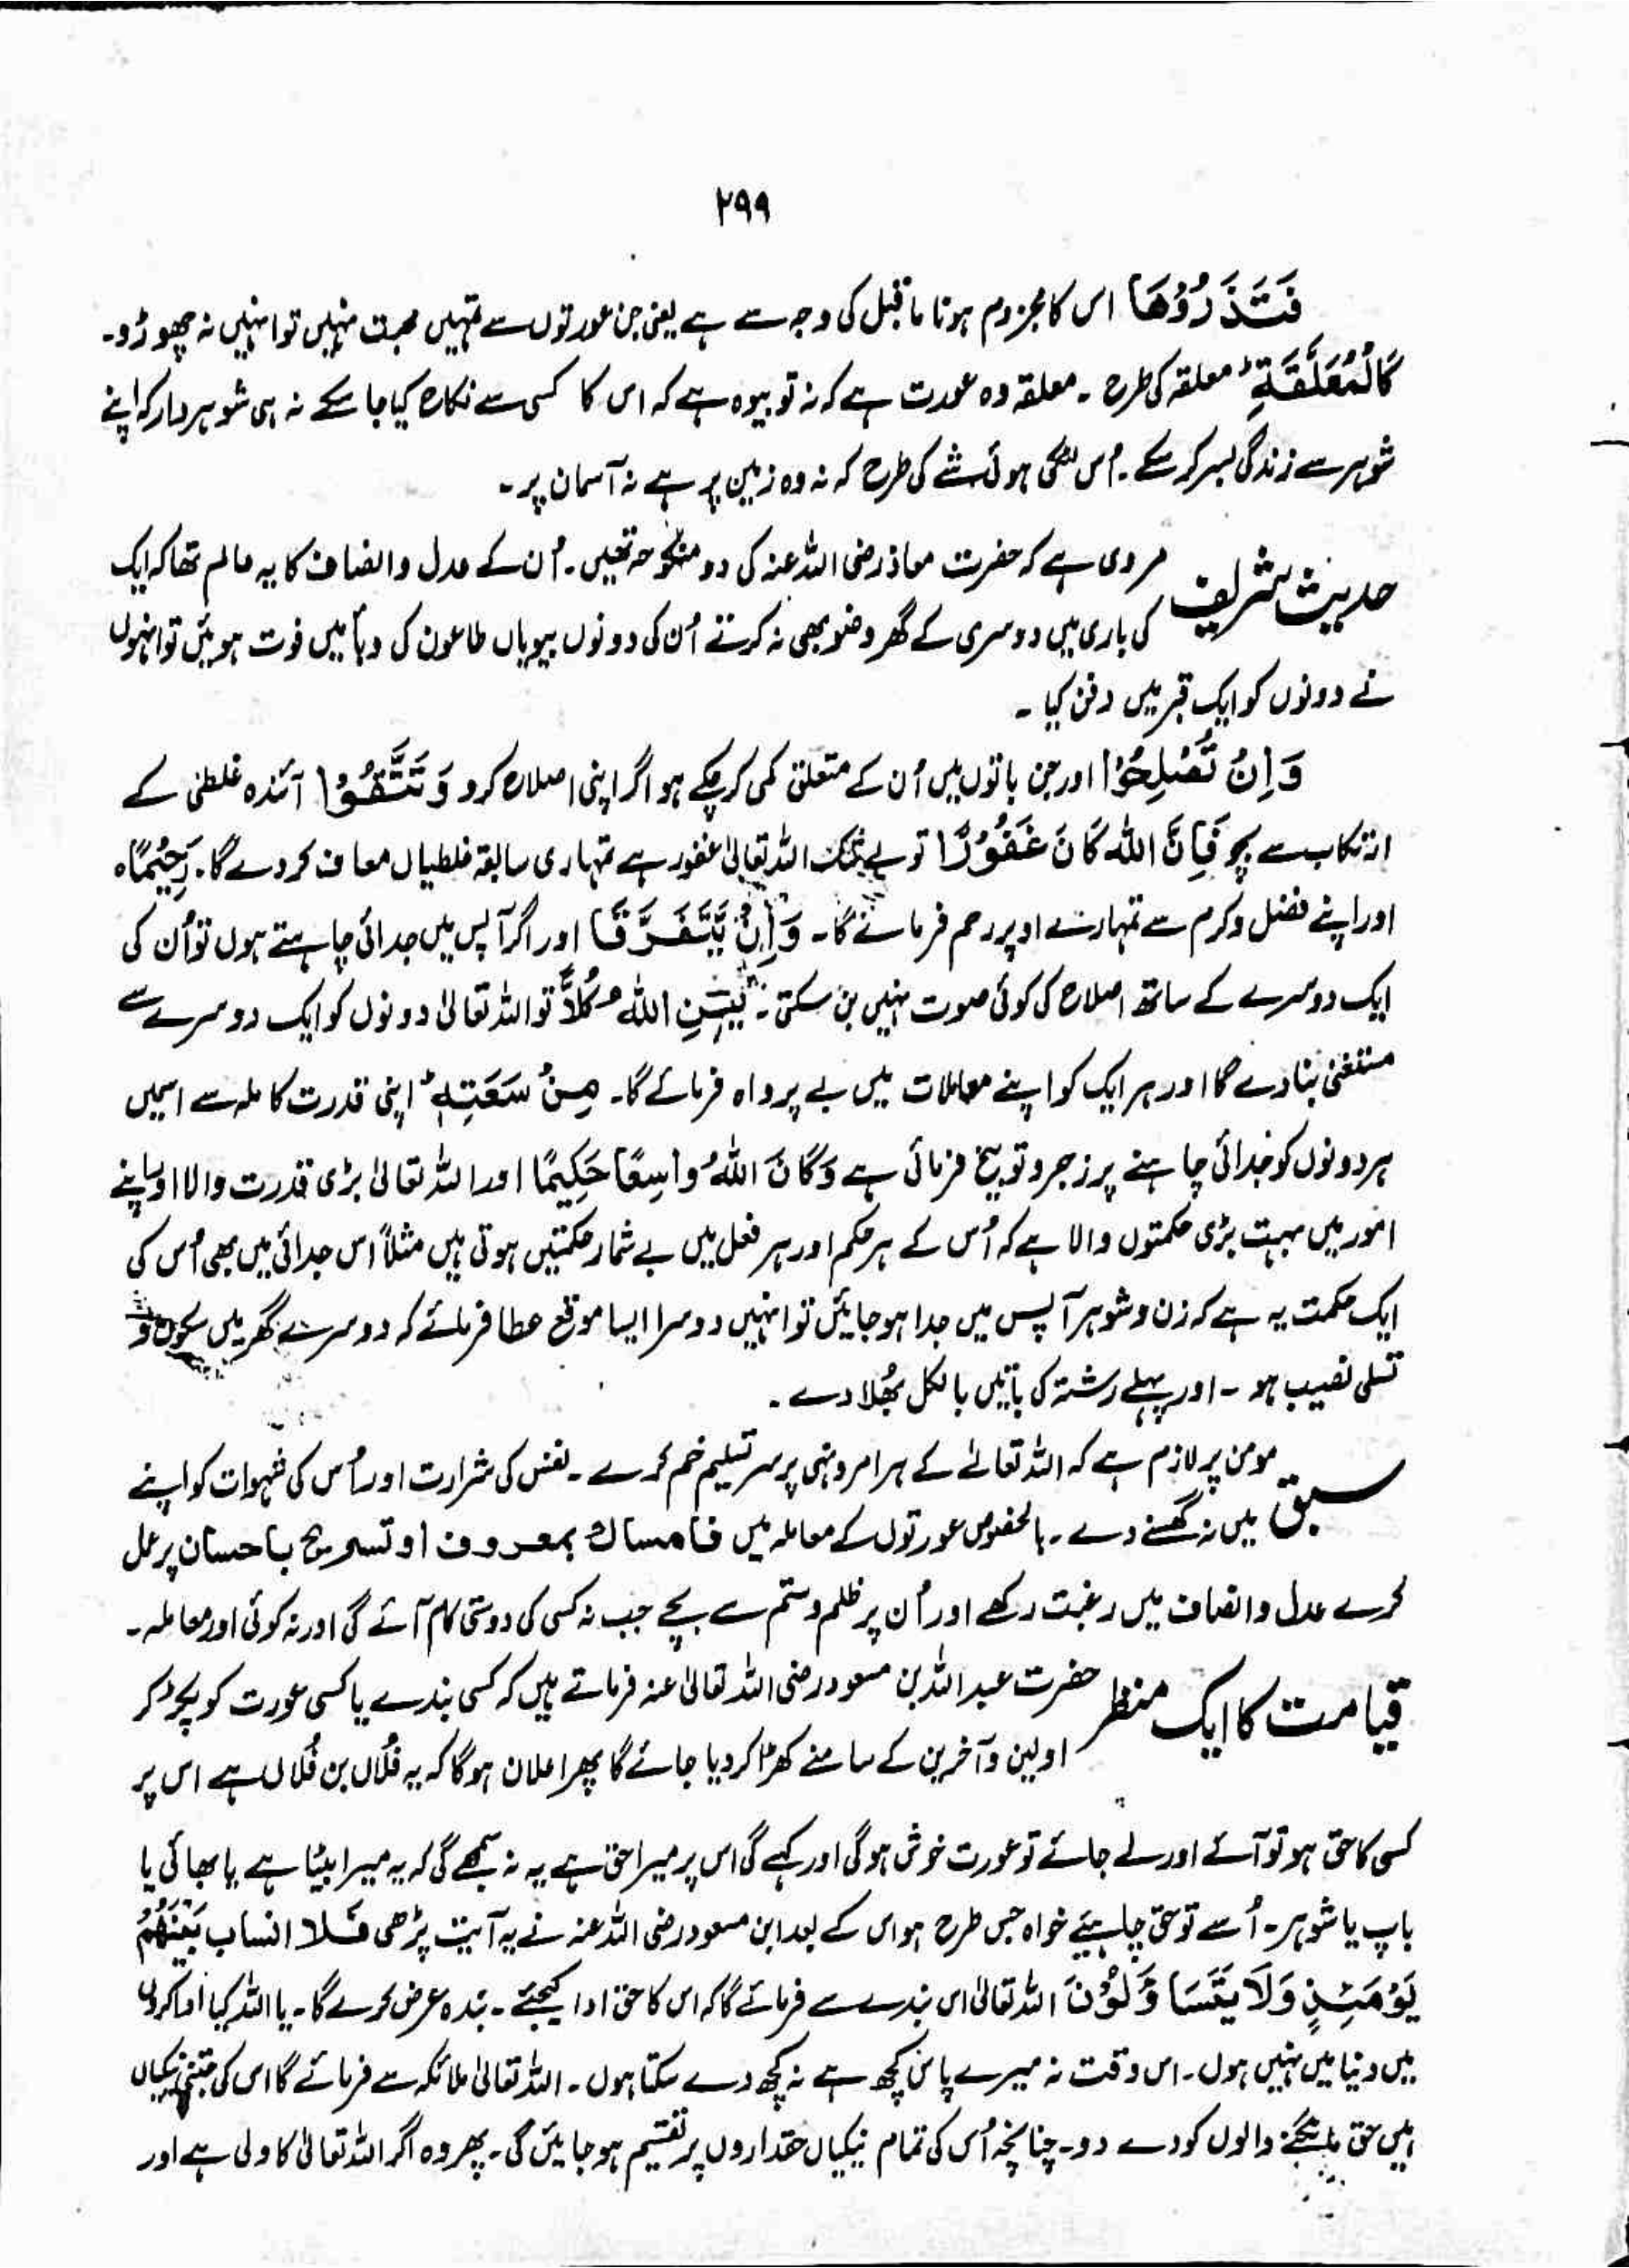 ۲۹۹
فَتَذَرُوْهَا اس کا مجزوم ہونا ماقبل کی وجہ سے ہے یعنی جن عورتوں سے تمہیں محبت نہیں تو انہیں نہ چھوڑو۔
كَالْمُعَلَّقَةِ ؕ معلقہ کی طرح ۔ معلقہ وہ عورت ہے کہ نہ تو بیوہ ہے کہ اس کا کسی سے نکاح کیا جا سکے نہ ہی شوہردار کہ اپنے
شوہر سے زندگی بسر کر سکے ۔ اُس لٹکی ہوئی شے کی طرح کہ نہ وہ زمین پر ہے نہ آسمان پر ۔
حدیث شریف مروی ہے کہ حضرت معاذ رضی اللہ عنہ کی دو منکوحہ تھیں ۔ اُن کے عدل و انصاف کا یہ عالم تھا کہ ایک
کی باری میں دوسری کے گھر وضو بھی نہ کرتے اُن کی دونوں بیویاں طاعون کی وبأ میں فوت ہوئیں تو انہوں
نے دونوں کو ایک قبر میں دفن کیا ۔
وَاِنْ تُصْلِحُوْا اور جن باتوں میں اُن کے متعلق کمی کر چکے ہو اگر اپنی اصلاح کرو وَتَتَّقُوْا آئندہ غلطی کے
ارتکاب سے بچو فَاِنَّ اللہَ كَانَ غَفُوْرًا تو بے شک اللہ تعالیٰ غفور ہے تمہاری سابقہ غلطیاں معاف کر دے گا ۔ رَحِيْمًا ہ
اور اپنے فضل و کرم سے تمہارے اوپر رحم فرمائے گا ۔ وَاِنْ يَّتَفَرَّقَا اور اگر آپس میں جدائی چاہتے ہوں تو اُن کی
ایک دوسرے کے ساتھ اصلاح کی کوئی صوت نہیں بن سکتی ۔ يُغْنِ اللہُ كُلًّا تو اللہ تعالیٰ دونوں کو ایک دوسرے سے
مستغنی بنا دے گا اور ہر ایک کو اپنے معاملات میں بے پرواہ فرمائے گا ۔ مِنْ سَعَتِهٖ ؕ اپنی قدرت کاملہ سے اسمیں
ہر دونوں کو جُدائی چاہنے پر زجر و توبیخ فرمائی ہے وَكَانَ اللہُ وَاسِعًا حَكِيْمًا اور اللہ تعالیٰ بڑی قدرت والا اور اپنے
امور میں بہت بڑی حکمتوں والا ہے کہ اُس کے ہر حکم اور ہر فعل میں بے شمار حکمتیں ہوتی ہیں مثلاً اس جدائی میں بھی اُس کی
ایک حکمت یہ ہے کہ زن و شوہر آپس میں جدا ہو جائیں تو انہیں دوسرا ایسا موقع عطا فرمائے کہ دوسرے گھر میں سکون و
تسلی نصیب ہو ۔ اور پہلے رشتہ کی باتیں بالکل بھُلا دے ۔
سبق مومن پر لازم ہے کہ اللہ تعالےٰ کے ہر امر و نہی پر سر تسلیم خم کرے ۔ نفس کی شرارت اور اُس کی شہوات کو اپنے
میں نہ گھسنے دے ۔ بالخصوص عورتوں کے معاملہ میں فامساك بمعروف او تسريح باحسان پر عمل
کرے عدل و انصاف میں رغبت رکھے اور اُن پر ظلم و ستم سے بچے جب نہ کسی کی دوستی کام آئے گی اور نہ کوئی اور معاملہ ۔
قیامت کا ایک منظر حضرت عبداللہ بن مسعود رضی اللہ تعالیٰ عنہ فرماتے ہیں کہ کسی بندے یا کسی عورت کو پکڑ کر
اولین و آخرین کے سامنے کھڑا کر دیا جائے گا پھر اعلان ہوگا کہ یہ فُلاں بن فُلاں ہے اس پر
کسی کا حق ہو تو آئے اور لے جائے تو عورت خوش ہوگی اور کہے گی اس پر میرا حق ہے یہ نہ سمجھے گی کہ یہ میرا بیٹا ہے یا بھائی یا
باپ یا شوہر ۔ اُسے تو حق چاہیئے خواہ جس طرح ہو اس کے بعد ابن مسعود رضی اللہ عنہ نے یہ آیت پڑھی فَلا انساب بَيْنَهُمْ
يَوْمَئِذٍ وَلَا يَتَسَاءَلُوْنَ اللہ تعالیٰ اس بندے سے فرمائے گا کہ اس کا حق ادا کیجئے ۔ بندہ عرض کرے گا ۔ یا اللہ کیا ادا کروں
میں دنیا میں نہیں ہوں ۔ اس وقت نہ میرے پاس کچھ ہے نہ کچھ دے سکتا ہوں ۔ اللہ تعالیٰ ملائکہ سے فرمائے گا اس کی جتنی نیکیاں
ہیں حق مانگنے والوں کو دے دو ۔ چنانچہ اُس کی تمام نیکیاں حقداروں پر تقسیم ہو جائیں گی ۔ پھر وہ اگر اللہ تعالیٰ کا ولی ہے اور